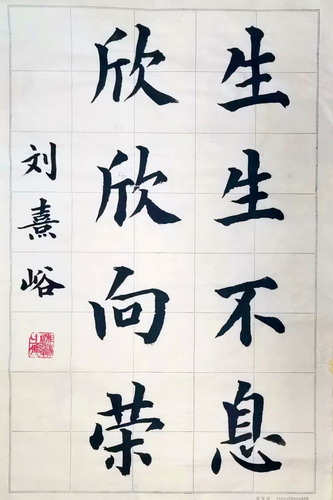 生生不息
欣欣向荣
刘熹峪